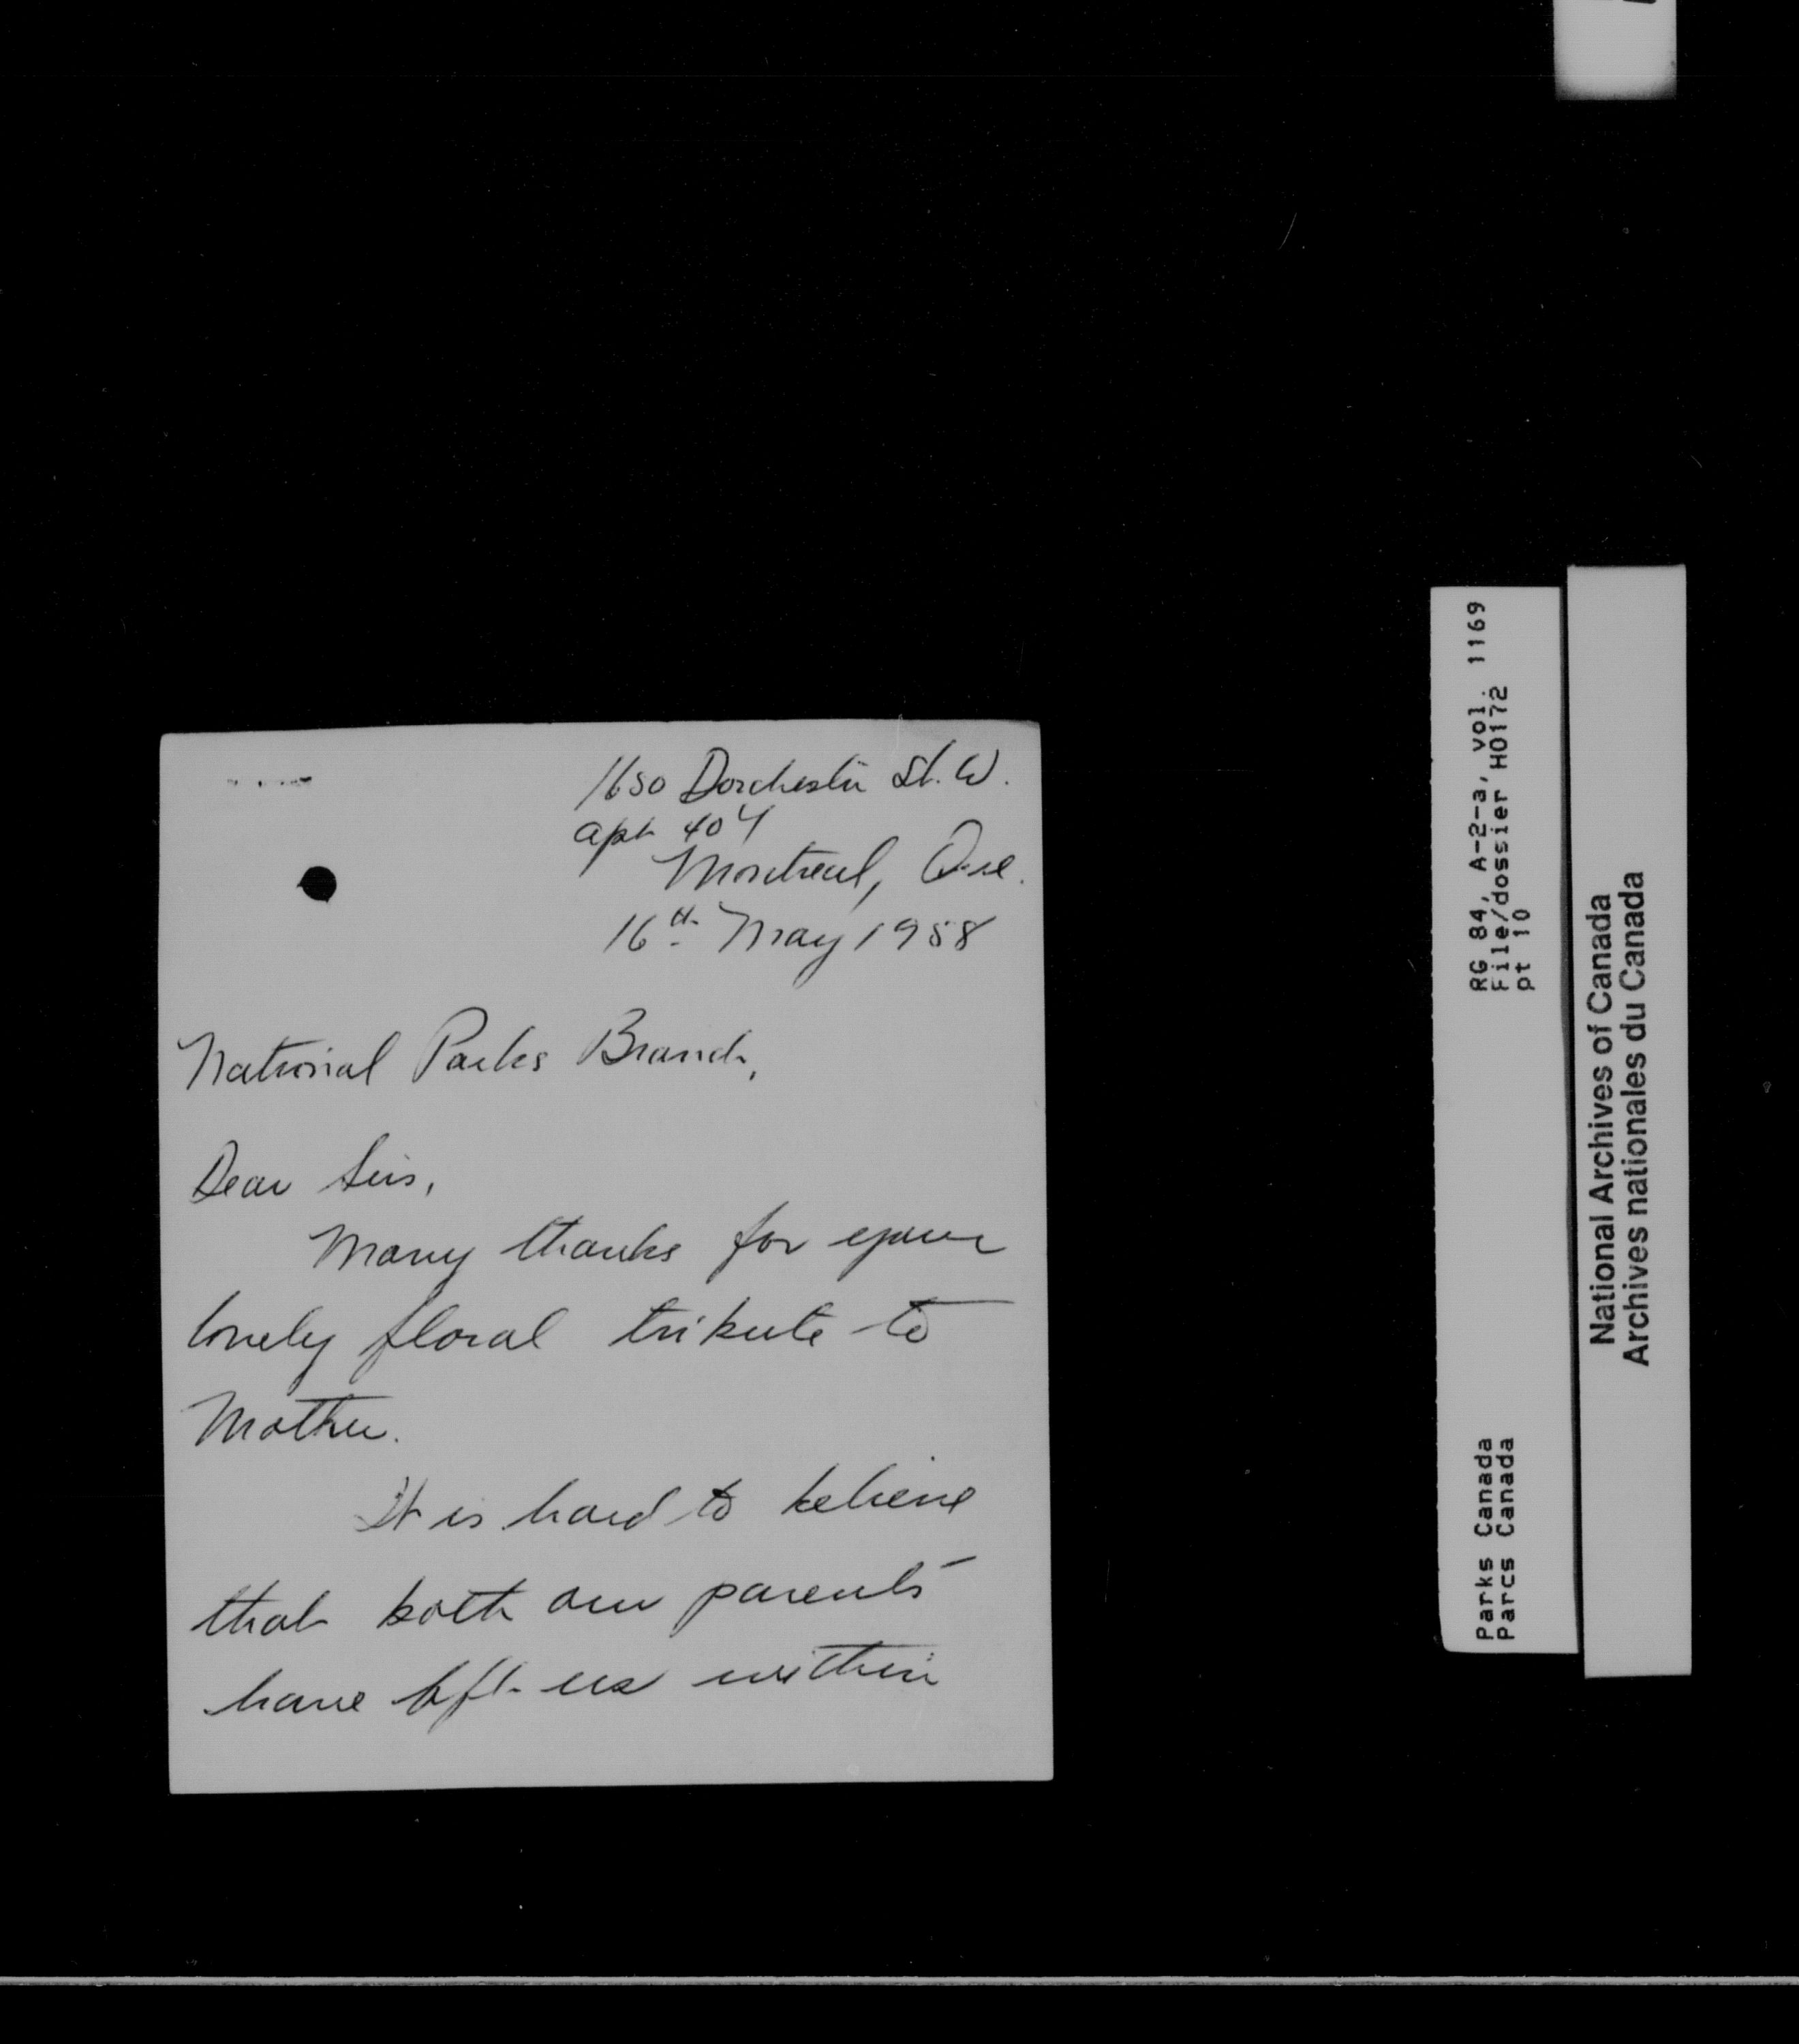 1650 Dorchester St. W.
apt 404
Montreal, Que.
16th May 1958
National Parks Branch,
Dear Sirs,
Many thanks for your
lovely floral tribute to
Mother.
It is hard to believe
that both our parents
have left us within
RG 84, A-2-a, vol. 1169
File/dossier H0172
pt 10
Parks Canada
Parcs Canada
National Archives of Canada
Archives nationales du Canada